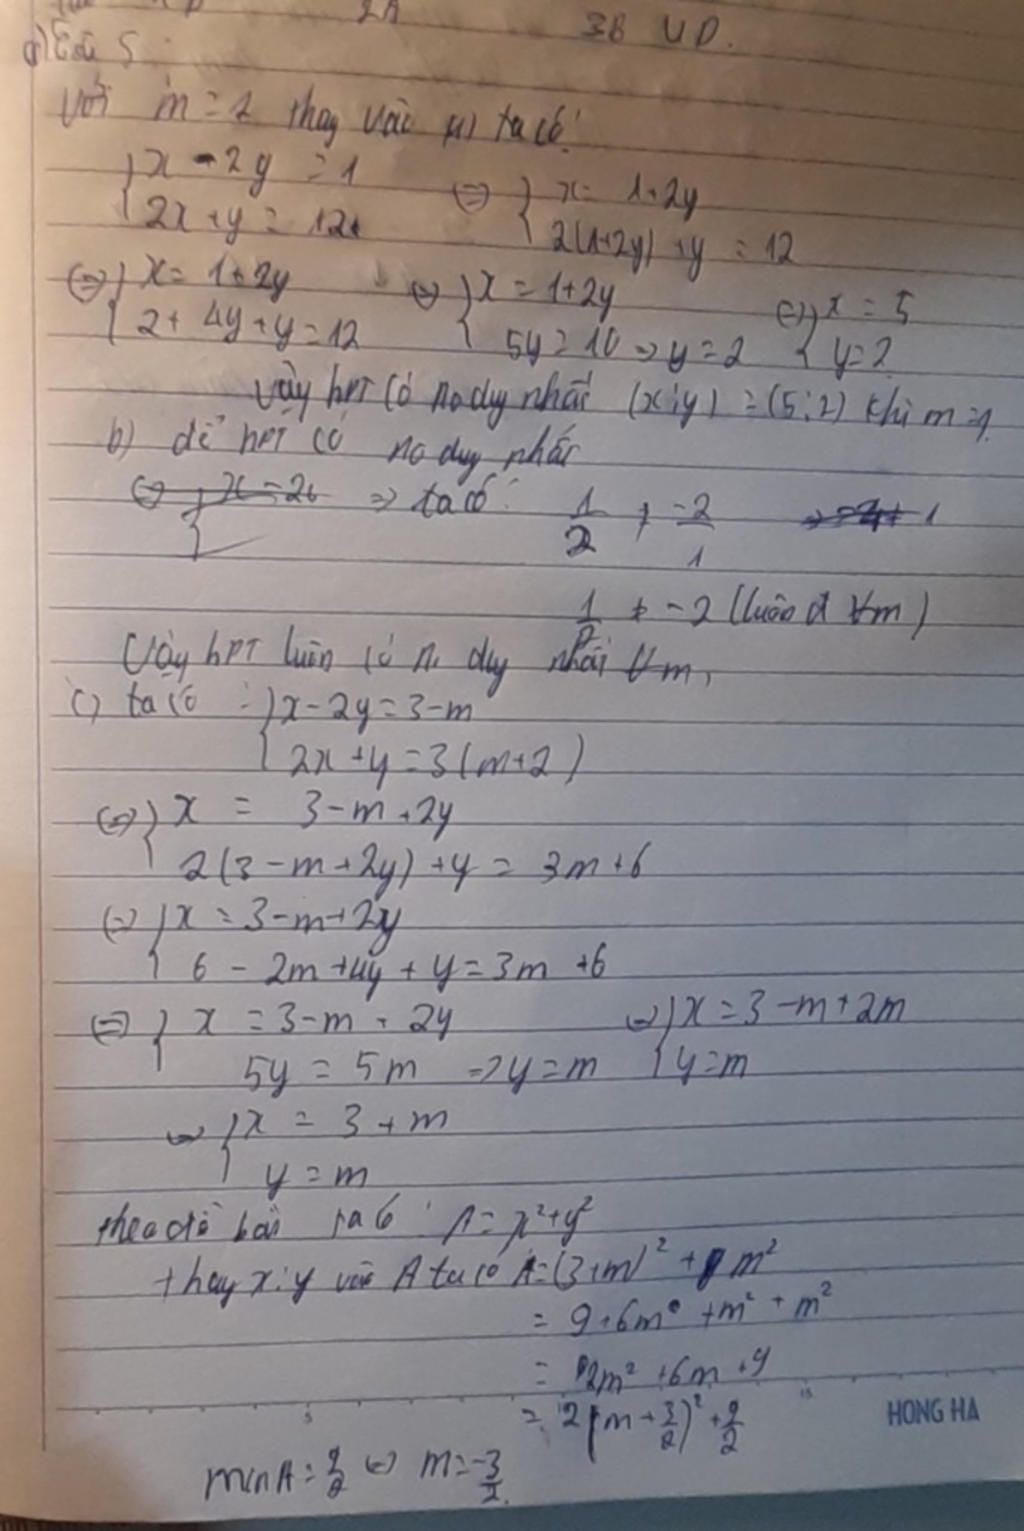 2A 3B UD.
a) Câu 5 :
Với m = 2 thay vào (1) ta có:
{ x - 2y = 1
2x + y = 12 <=> { x = 1+2y
2(1+2y) + y = 12
<=> { x = 1+2y
2 + 4y + y = 12 <=> { x = 1+2y
5y = 10 => y = 2 <=> { x = 5
y = 2
Vậy hPT có no duy nhất (x;y) = (5;2) khi m =
b) để hPT có no duy nhất
<=> { x = 2 => ta có : 1/2 ≠ -2/1
1/2 ≠ -2 (luôn đ ∀m)
Vậy hPT luôn có n. duy nhất ∀m,
c) ta có : { x - 2y = 3 - m
2x + y = 3(m+2)
<=> { x = 3 - m + 2y
2(3 - m + 2y) + y = 3m + 6
<=> { x = 3 - m + 2y
6 - 2m + 4y + y = 3m + 6
<=> { x = 3 - m + 2y
5y = 5m => y = m <=> { x = 3 - m + 2m
y = m
<=> { x = 3 + m
y = m
theo đề bài ta có : A = x² + y²
thay x;y vào A ta có A = (3+m)² + m²
= 9 + 6m + m² + m²
= 2m² + 6m + 9
= 2(m + 3/2)² + 9/2
HONG HA
min A = 9/2 <=> m = -3/2.